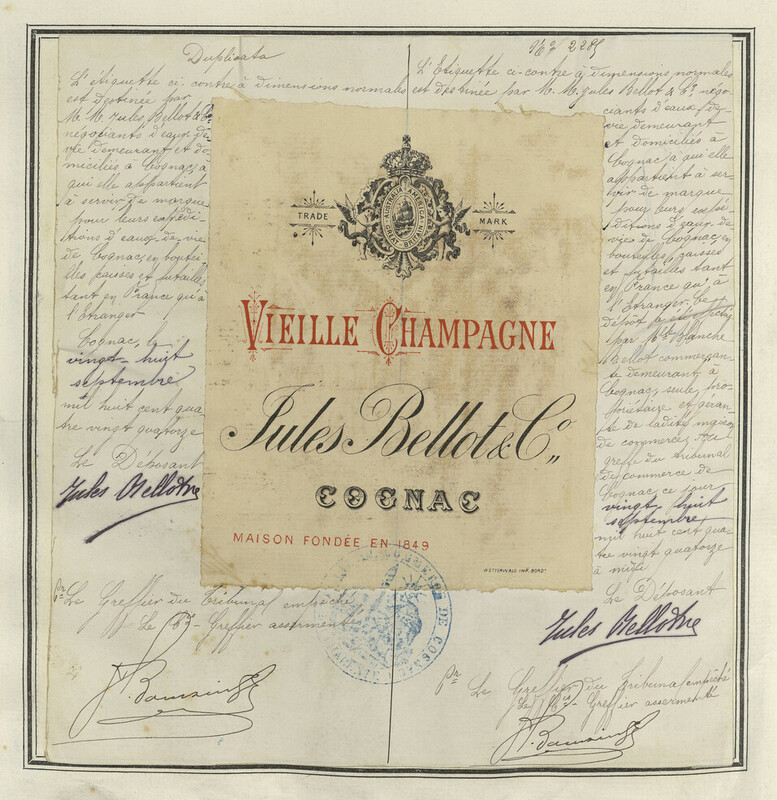 Duplicata
L'étiquette ci-contre à dimensions normales
est destinée par
M. M. Jules Bellot & Co
négociants d'eaux de
vie demeurant et do
miciliés à Cognac, à
qui elle appartient
à servir de marque
pour leurs expédi
tions d'eaux de vie
de Cognac, en boutei
lles caisses et futailles
tant en France qu'à
l'étranger
Cognac, le
vingt huit
septembre
mil huit cent qua
tre vingt quatorze
Le Déposant
Jules Bellot
Pr Le Greffier du Tribunal empêché
Le Greffier assermenté
No 2285
L'Etiquette ci-contre à dimensions normales
est destinée par M. M. Jules Bellot & Co négo
ciants d'eaux de
vie demeurant
et domiciliés à
Cognac à qui elle
appartient à ser
vir de marque
pour leurs expé
ditions d'eaux de
vies de Cognac, en
bouteilles, caisses
et futailles tant
en France qu'à
l'étranger. Ce
dépôt a été
par Blanche
Bellot commerçan
te demeurant à
Cognac, seule pro
priétaire et géran
te de ladite maison
de commerce. Au
greffe du tribunal
de commerce de
Cognac ce jour
vingt huit
septembre
mil huit cent qua
tre vingt quatorze
à midi
Le Déposant
Jules Bellot
Pr Le Greffier du Tribunal empêché
Le Greffier assermenté
TRADE MARK
AUSTRALIA AMERICA
GREAT BRITAIN
VIEILLE CHAMPAGNE
Jules Bellot & Co
COGNAC
MAISON FONDÉE EN 1849
WETTERWALD IMP. BORDx
COMMERCE DE COGNAC